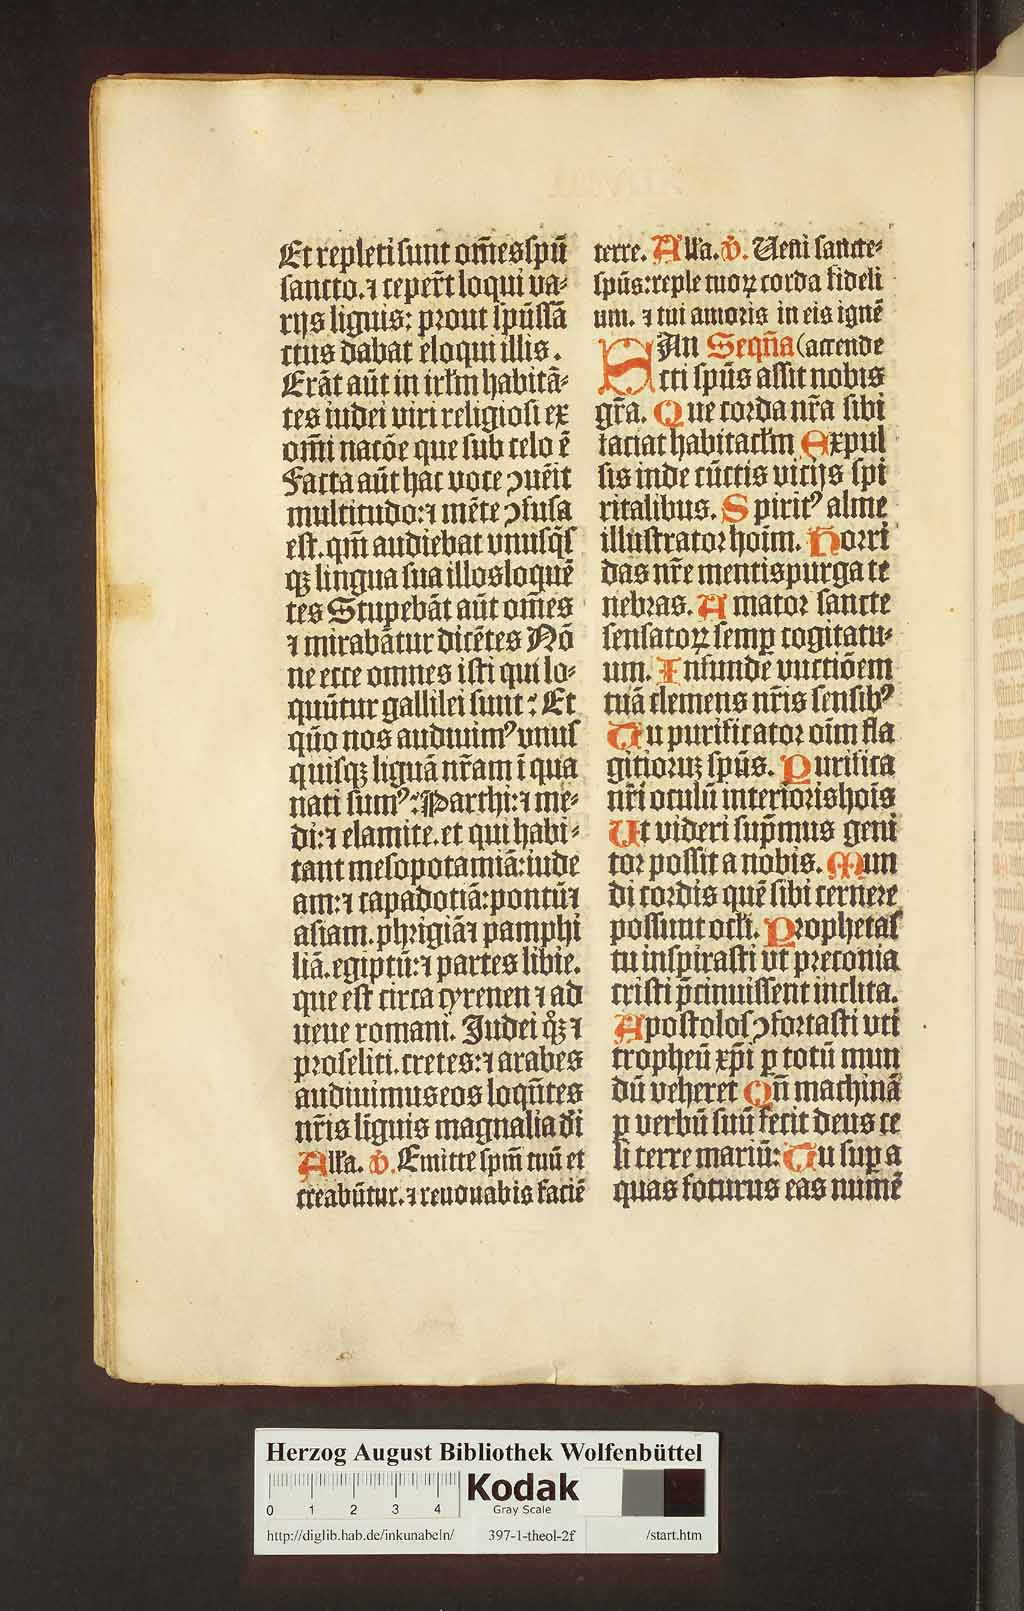 Et repleti sunt om̄es spū
sancto. ⁊ ceper̄t loqui va⸗
rijs liguis: prout spūssā
ctus dabat eloqui illis.
Erāt aūt in irl̄m habitā⸗
tes iudei viri religiosi ex
om̄i natōe que sub celo ē
Facta aūt hac voce ꝯuēit
multitudo: ⁊ mēte ꝯfusa
est. qm̄ audiebat unusq̄s
qꝫ lingua sua illos loquē
tes Stupebāt aūt om̄es
⁊ mirabātur dicētes Nō
ne ecce omnes isti qui lo⸗
quūtur gallilei sunt: Et
quō nos audiuimꝰ vnus
quisqꝫ liguā nr̄am ī qua
nati sumꝰ: Parthi: ⁊ me⸗
di: ⁊ elamite. et qui habi⸗
tant mesopotamiā: iude
am: ⁊ capadotiā: pontū ⁊
asiam. phrigiā ⁊ pamphi
liā. egiptū: ⁊ partes libie.
que est circa cyrenen ⁊ ad
uene romani. Iudei qͦꝫ ⁊
proseliti. cretes: ⁊ arabes
audiuimus eos loqūtes
nr̄is līguis magnalia dī
All'a. v̇. Emitte spm̄ tuū et
creabūtur. ⁊ renouabis faciē
terre. All'a. v̇. Ueni sancte⸗
spūs: reple tuoꝝ corda fideli
um. ⁊ tui amoris in eis ignē
SAn Seqn̄a (accende
cti spūs assit nobis
gr̄a. Que corda nr̄a sibi
faciat habitacl̄m Expul
sis inde cūctis vicijs spi
ritalibus. Spiritꝰ alme
illustrator hoīm. Horri
das nr̄e mentis purga te
nebras. Amator sancte
sensatoꝝ semꝑ cogitatu⸗
um. Infunde vnctiōem
tuā clemens nr̄is sensibꝰ
Tu purificator oīm fla
gitioruꝫ spūs. Purifica
nr̄i oculū interioris hoīs
Ut videri sup̄mus geni
tor possit a nobis. Mun
di cordis quē sibi cernere
possunt ocl̄i. Prophetas
tu inspirasti vt preconia
cristi p̄cinuissent inclita.
Apostolos ꝯfortasti vti
tropheū xp̄i ꝑ totū mun
dū veheret Qn̄ machinā
ꝑ verbū suū fecit deus ce
li terre mariū: Tu suꝑ a
quas foturus eas numē
Herzog August Bibliothek Wolfenbüttel
0 1 2 3 4
Kodak
Gray Scale
http://diglib.hab.de/inkunabeln/ 397-1-theol-2f /start.htm